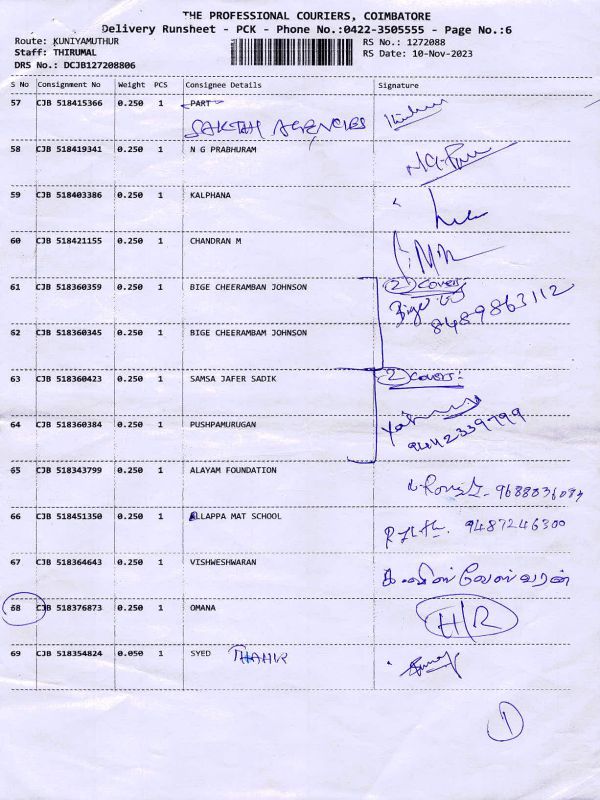 THE PROFESSIONAL COURIERS, COIMBATORE
Delivery Runsheet - PCK - Phone No.:0422-3505555 - Page No.:6
Route: KUNIYAMUTHUR RS No.: 1272088
Staff: THIRUMAL RS Date: 10-Nov-2023
DRS No.: DCJB127208806
S No Consignment No Weight PCS Consignee Details Signature
57 CJB 518415366 0.250 1 PART
SAKTHI AGENCIES
58 CJB 518419341 0.250 1 N G PRABHURAM
59 CJB 518403386 0.250 1 KALPHANA
60 CJB 518421155 0.250 1 CHANDRAN M
61 CJB 518360359 0.250 1 BIGE CHEERAMBAN JOHNSON 2 covers
Bige
8489863112
62 CJB 518360345 0.250 1 BIGE CHEERAMBAM JOHNSON
63 CJB 518360423 0.250 1 SAMSA JAFER SADIK 2 covers:
64 CJB 518360384 0.250 1 PUSHPAMURUGAN
9442339799
65 CJB 518343799 0.250 1 ALAYAM FOUNDATION
66 CJB 518451350 0.250 1 ELLAPPA MAT SCHOOL 9487246300
67 CJB 518364643 0.250 1 VISHWESHWARAN
68 CJB 518376873 0.250 1 OMANA H/R
69 CJB 518354824 0.050 1 SYED THAHIR
1